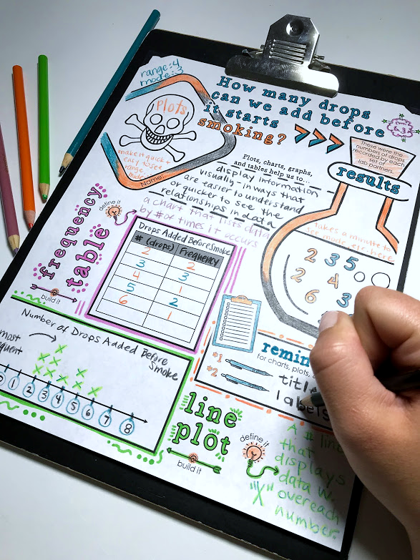 range: 4
mode: 3
Plots
How many drops
can we add before
it starts
smoking?
these were the
numbers of drops
recorded by each
lab partners
results
Plots, charts, graphs,
and tables help us to...
display information
visually - in ways that
are easier to understand
or quicker to see the
relationships in data
frequency
table
define it
build it
a chart that lists
by # of times it occurs
Drops Added Before Smoke
# (drops) Frequency
2 2
3 3
4 1
5 2
6 1
2 3 5
2 4
6 3
remin
for charts, plots,
#1 title
#2 labels
Number of Drops Added Before
Smoke
most
1 2 3 4 5 6 7 8
line
plot
define it
build it
that
displays
data w/
"X"
over each
number.